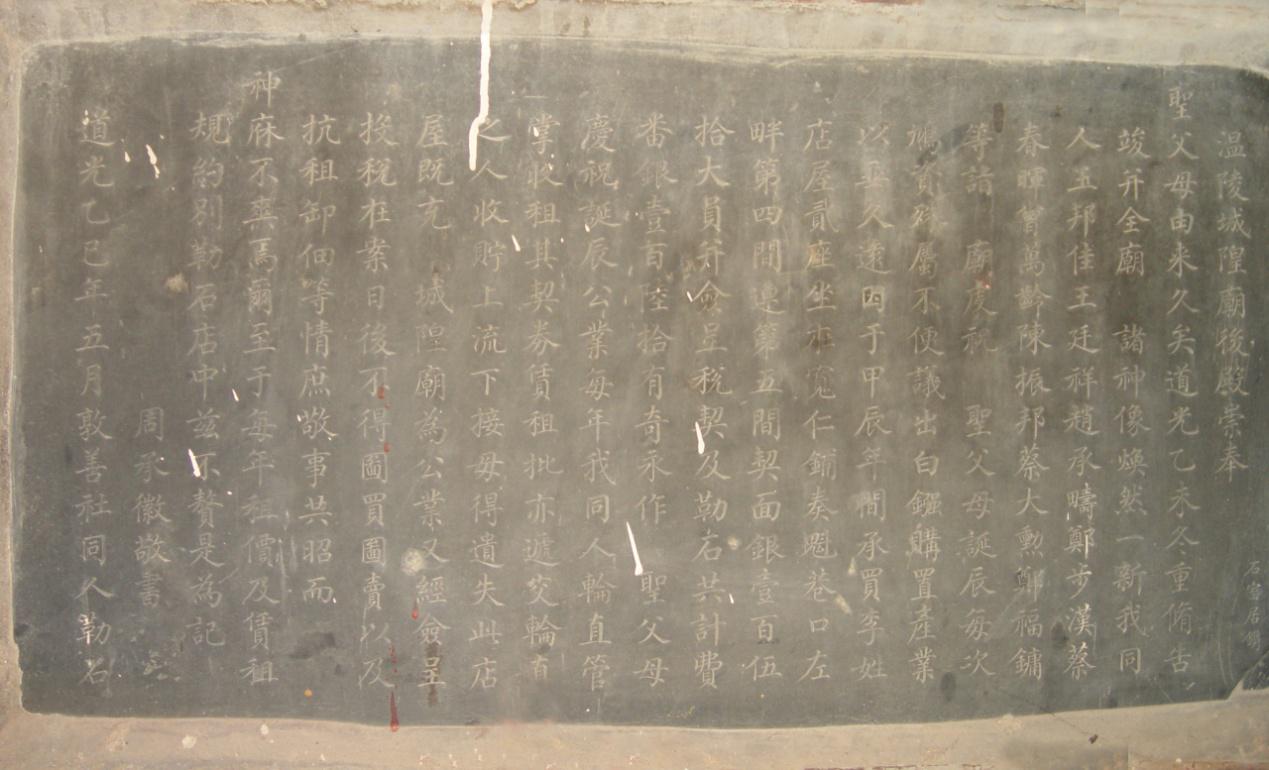 石室居鐫
温陵城隍廟後殿崇奉
聖父母由来久矣道光乙未冬重脩告
竣并全廟 諸神像煥然一新我同
人王邦佳王廷祥趙承疇鄭步漢蔡
春暉曾萬齡陳振邦蔡大勲鄭福鏞
等詣 廟慶祝 聖父母誕辰每次
資殊屬不便議出白鏹購置產業
以垂久遠因于甲辰年間承買李姓
店屋貳座坐在寬仁鋪奏魁巷口左
畔第四間連第五間契面銀壹百伍
拾大員并僉呈稅契及勒石共計費
番銀壹百陸拾有奇永作 聖父母
慶祝誕辰公業每年我同人輪直管
掌收租其契券賃租批亦遞交輪直
之人收貯上流下接毋得遺失此店
屋既充 城隍廟為公業又經僉呈
投稅在案日後不得圖買圖賣以及
抗租卸佃等情庶敬事共昭而
神庥不爽焉爾至于每年租價及賃租
規約別勒石店中兹不贅是為記
周承徽敬書
道光乙巳年五月敦善社同人勒石